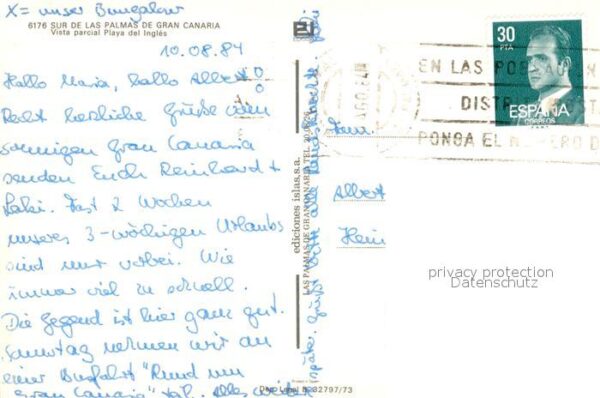 X = unser Bungalow
6176 SUR DE LAS PALMAS DE GRAN CANARIA
Vista parcial Playa del Inglés
10.08.84
Hallo Maria, hallo Albert
Recht herzliche Grüße vom
sonnigen Gran Canaria
senden Euch Reinhard +
Fast 2 Wochen
unseres 3-wöchigen Urlaubs
sind nun vorbei. Wie
immer viel zu schnell.
Die Gegend ist hier ganz gut.
Sonntag nehmen wir an
einer Busfahrt "Rund um
Gran Canaria" teil. Alles weitere
später. Grüßt bitte alle
ediciones islas, s.a.
LAS PALMAS DE GRAN CANARIA TEL.
Dep. Legal B. 32797/73
30
PTA
ESPAÑA
CORREOS
EN LAS
DISTR
PONGA EL NUMERO D
Fam.
Albert
Hein
privacy protection
Datenschutz